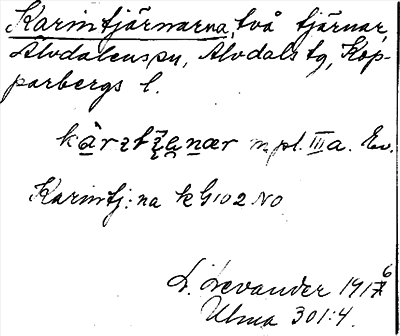 Karintjärnarna, två tjärnar,
Älvdalens sn, Älvdals tg, Kop-
parbergs l.
m. pl. III a. Ev.
Karintj:na kG102 NO
L. Levander 1916
Ulma 301:4.